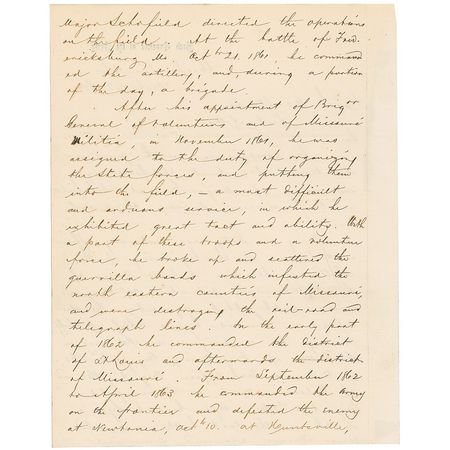 Major Schofield directed the operations
on the field. At the battle of Fred-
ericksburg Mo. Octbr 21. 1861, he command
ed the artillery, and, during a portion
of the day, a brigade.
After his appointment of Brigr
General of Volunteers and of Missouri
Militia, in November 1861, he was
assigned to the duty of organizing
the State forces, and putting them
into the field, – a most difficult
and arduous service, in which he
exhibited great tact and ability. With
a part of these troops and a volunteer
force, he broke up and scattered the
guerrilla bands which infested the
north eastern counties of Missouri,
and were destroying the rail-road and
telegraph lines. In the early part
of 1862 he commanded the district
of St Louis and afterwards the district
of Missouri. From September 1862
to April 1863 he commanded the Army
on the frontier and defeated the enemy
at Newtonia, Octbr 10. at Huntsville,